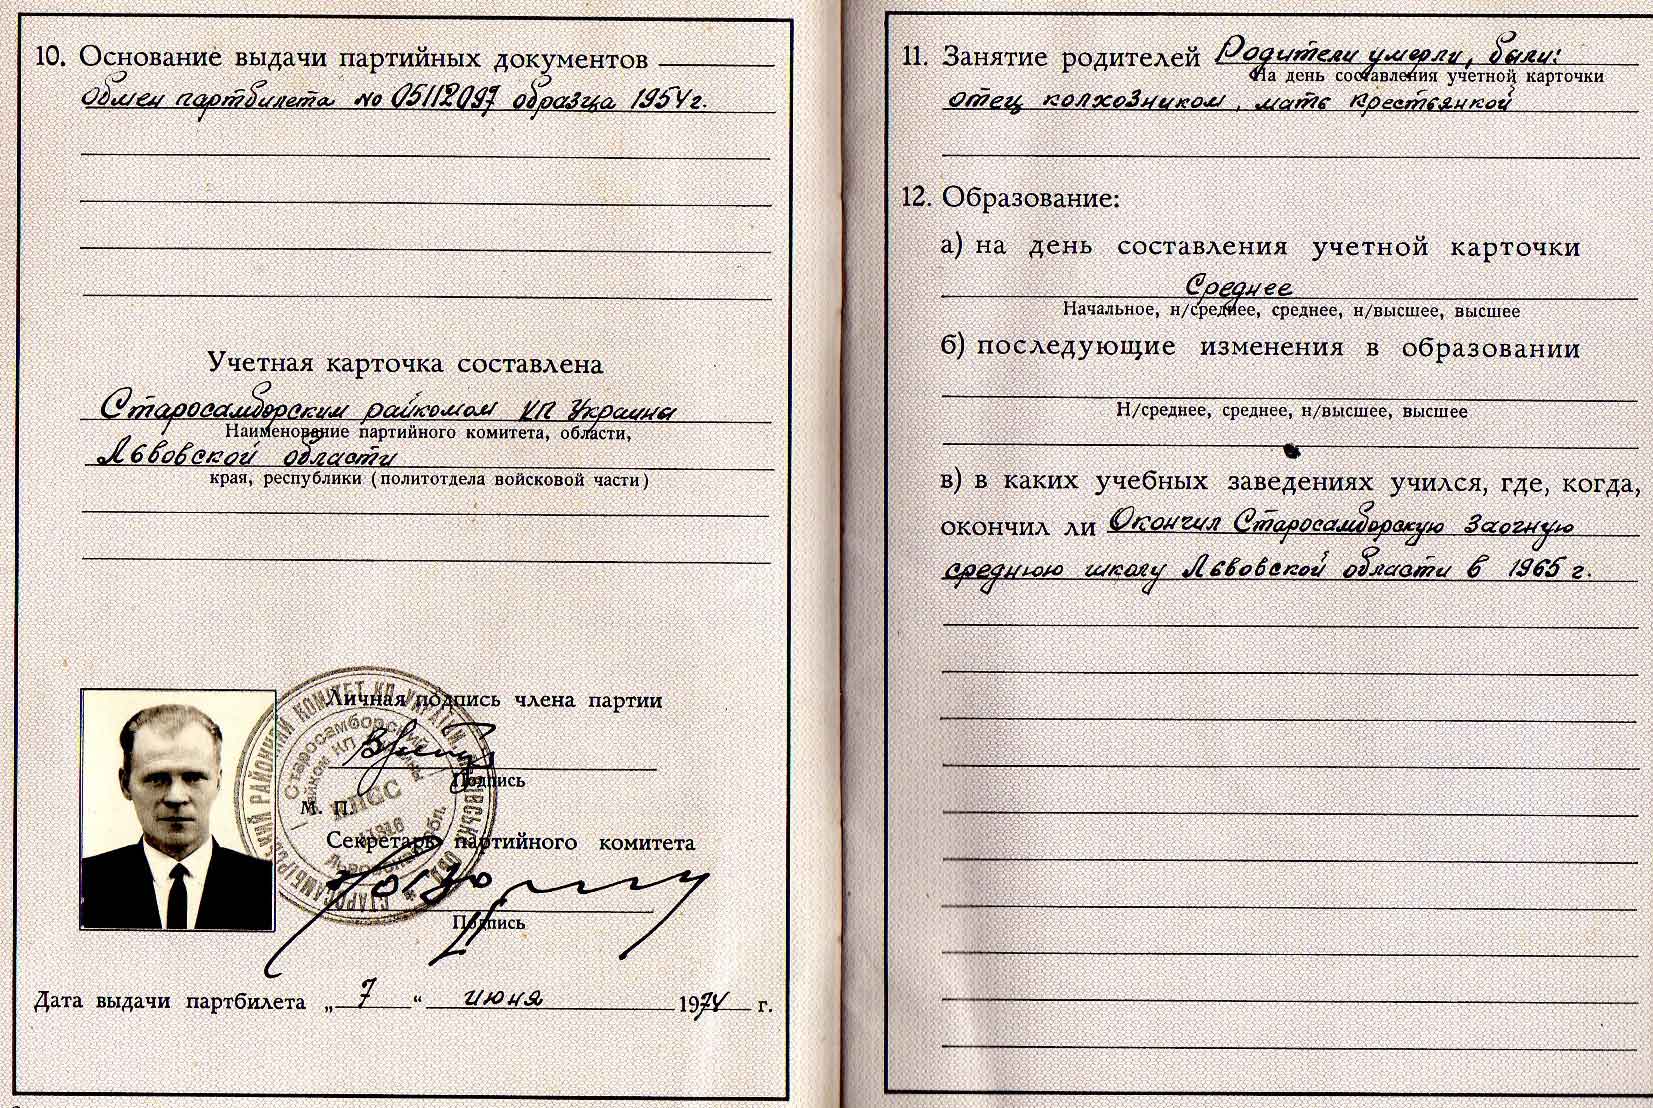 10. Основание выдачи партийных документов
Обмен партбилета No 05112097 образца 1954г.
Учетная карточка составлена
Старосамборским райкомом КП Украина
Наименование партийного комитета, области,
Львовской области
края, республики (политотдела войсковой части)
Личная подпись члена партии
Подпись
М. П.
Секретарь партийного комитета
Подпись
СТАРОСАМБІРСЬКИЙ РАЙОННИЙ КОМІТЕТ КП УКРАЇНИ, ЛЬВІВСЬКА ОБЛ.
Старосамборский
райком КП Украины
КПСС
Львовская обл.
Дата выдачи партбилета „ 7 “ июня 1974 г.
11. Занятие родителей Родители умерли, были:
На день составления учетной карточки
отец колхозником, мать крестьянкой
12. Образование:
а) на день составления учетной карточки
Среднее
Начальное, н/среднее, среднее, н/высшее, высшее
б) последующие изменения в образовании
Н/среднее, среднее, н/высшее, высшее
в) в каких учебных заведениях учился, где, когда,
окончил ли Окончил Старосамборскую заочную
среднюю школу Львовской области в 1965 г.